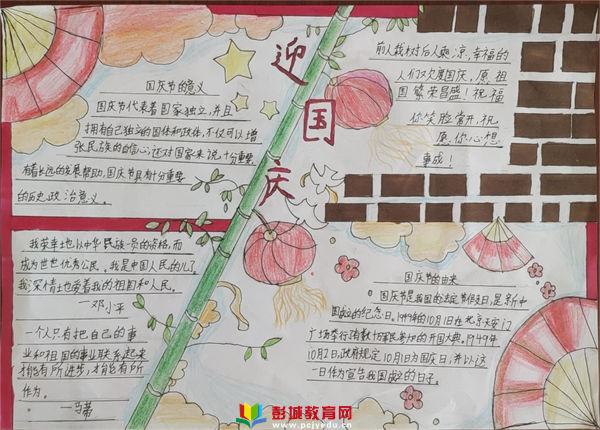 迎国庆
国庆节的意义
国庆节代表着国家独立,并且
拥有自己独立的国体和政体,不仅可以增
张民族的自信心,还对国家来说,十分重要
有着长远的发展帮助,国庆节具有十分重要
的历史政治意义。
前人栽树后人乘凉,幸福的
人们欢度国庆,原祖
国繁荣昌盛!祝福
你笑脸常开,祝
愿你心想
事成!
我荣幸地以中华民族一员的资格,而
成为世世优秀公民。我是中国人民的儿子
我深情土也爱着我的祖国和人民。
一邓小平
一个人只有把自己的事
业和祖国的事业联系起来
才能有所进步,才能有所
作为。
一马蒂
国庆节的由来
国庆节是我国的法定节假日,是新中
国成立的纪念日。1949年的10月1日在北京天安门
广场举行有数十万军民参加的开国大典。1949年
10月2日,政府规定10月1日为国庆日,并以这
一日作为宣告我国成立的日子。
彭城教育网
www.pcjyedu.cn